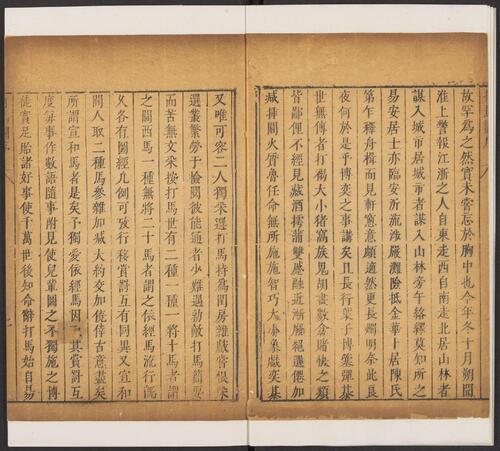 故罕為之然實未嘗忘於胸中也今年冬十月朔聞
淮上警報江浙之人自東走西自南走北居山林者
謀入城市居城市者謀入山林旁午絡繹莫知所之
易安居士亦臨安泝流涉嚴灘險抵金華卜居陳氏
第乍釋舟楫而見軒窓意頗適然更長燭明奈此良
夜何於是乎博奕之事講矣且長行葉子博塞彈碁
世無傳者打楬大小猪窩族鬼胡畫數倉賭快之類
皆鄙俚不經見藏酒摴蒲雙蹙融近漸廢絕選僊加
減揷關火質魯任命無所施施智巧大小象戲奕碁
又唯可容二人獨采選打馬特為閨房雅戲嘗恨采
選叢繁勞于檢閱故能通者少難遇勍敵打馬簡要
而苦無文采按打馬世有二種一種一將十馬者謂
之關西馬一種無將二十馬者謂之依經馬流行既
久各有圖經凡例可攷行移賞罰互有同異又宣和
間人取二種馬參雜加減大約交加僥倖古意盡矣
所謂宣和馬者是矣予獨愛依經馬因取其賞罰互
度每事作數語隨事附見使兒輩圖之不獨施之博
徒實足貽諸好事使千萬世後知命辭打馬始自易